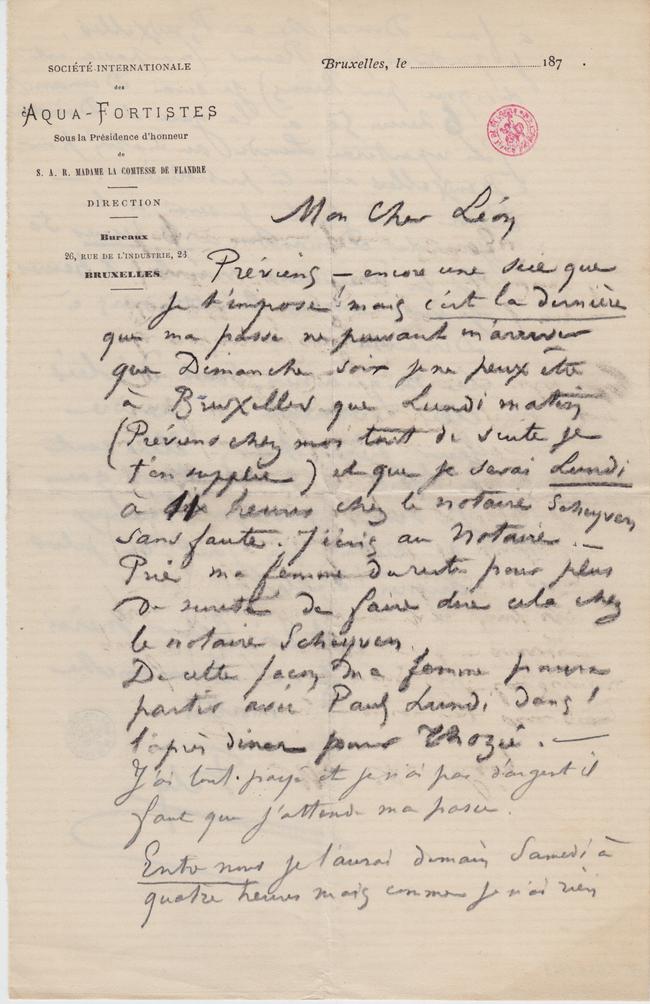 SOCIÉTÉ INTERNATIONALE
des
AQUA-FORTISTES
Sous la Présidence d'honneur
de
S. A. R. MADAME LA COMTESSE DE FLANDRE
DIRECTION
Bureaux
26, RUE DE L'INDUSTRIE, 26
BRUXELLES
Bruxelles, le 187 .
Mon Cher Léon
Préviens – encore une scie que
je t'impose ! mais c'est la dernière
que ma passe ne pouvant m'arriver
que Dimanche soir je ne peux être
à Bruxelles que Lundi matin
(Préviens chez moi tout de suite je
t'en supplie) et que je serai Lundi
à 11 heures chez le notaire Scheyven
sans faute. J'écris au Notaire. –
Prie ma femme du reste pour plus
de sureté de faire dire cela chez
le notaire Scheyven.
De cette façon ma femme pourra
partir avec Paul Lundi dans
l'après diner pour Thozée. –
J'ai tout payé et je n'ai pas d'argent il
faut que j'attende ma passe.
Entre nous je l'aurai demain Samedi à
quatre heures mais comme je n'ai rien